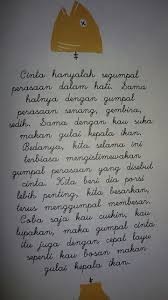 Cinta hanyalah segumpal
perasaan dalam hati. Sama
halnya dengan gumpal
perasaan senang, gembira,
sedih. Sama dengan kau suka
makan gulai kepala ikan.
Bedanya, kita selama ini
terbiasa mengistimewakan
gumpal perasaan yang disebut
cinta. Kita beri dia porsi
lebih penting, kita besarkan,
terus menggumpal membesar.
Coba saja kau cuekin, kau
lupakan, maka gumpal cinta
itu juga dengan cepat layu
seperti kau bosan makan
gulai kepala ikan.